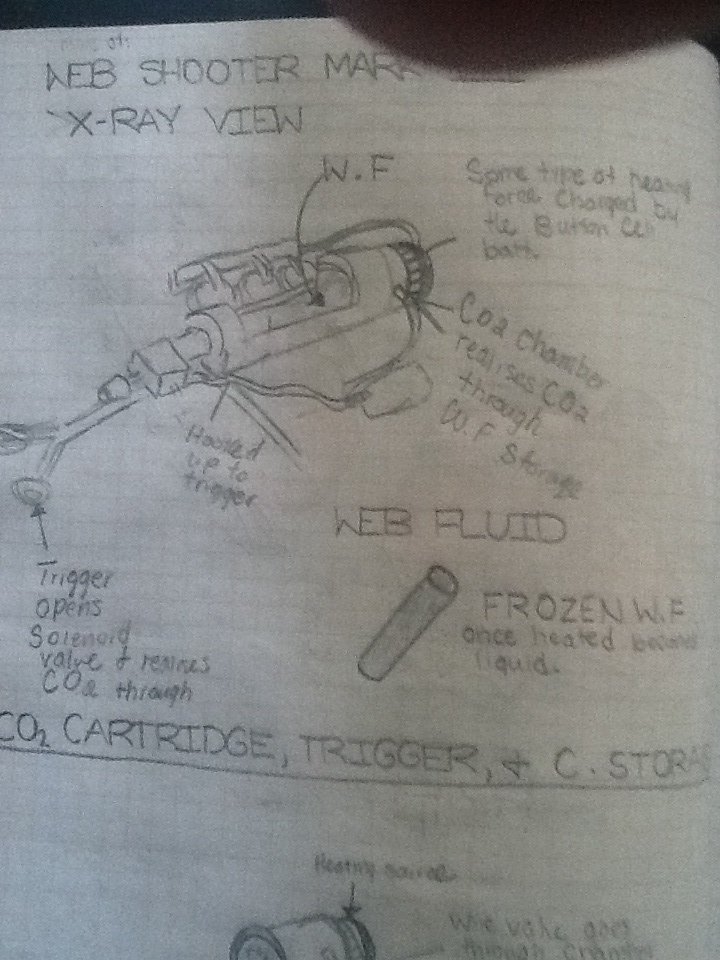 WEB SHOOTER MARK
X-RAY VIEW
W.F
Some type of heating
force charged by
the Button Cell
batt.
CO2 chamber
realises CO2
through
W.F Storage
Hooked
up to
trigger
WEB FLUID
Trigger
opens
Solenoid
valve &
CO2 through
FROZEN W.F
once heated
liquid.
CO2 CARTRIDGE, TRIGGER, & C. STORA
Heating
through